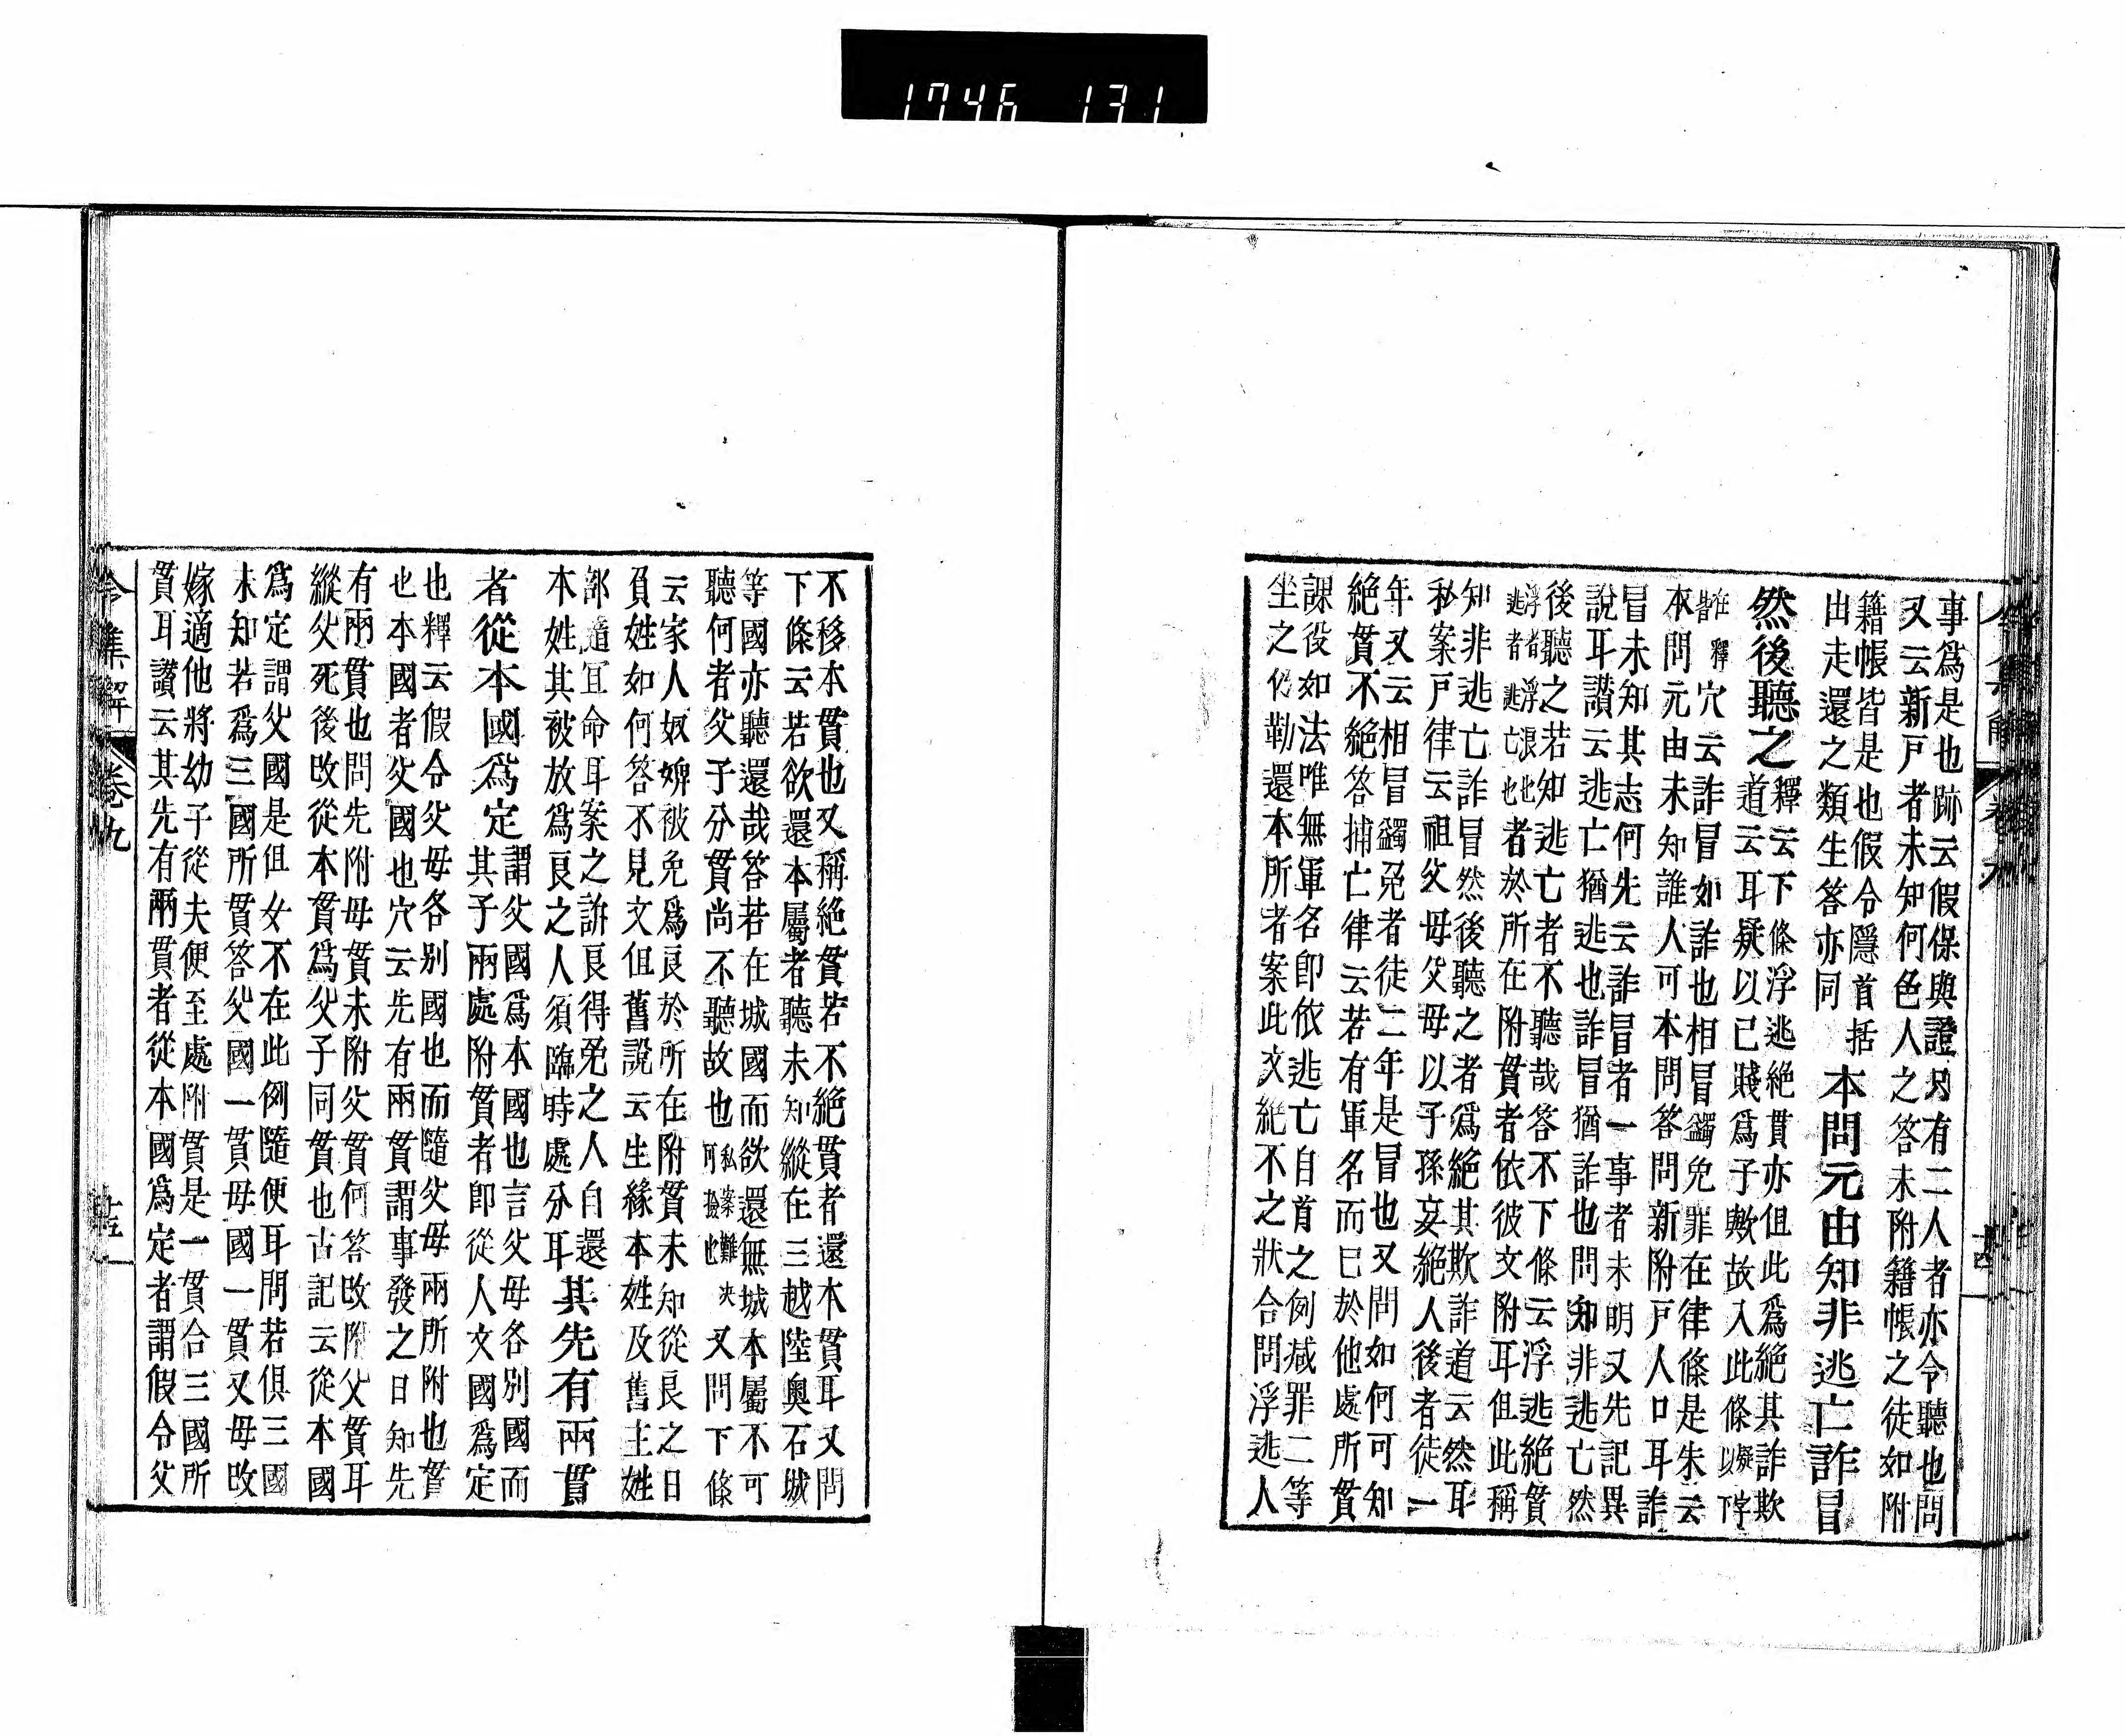 1746 131
事爲是也跡云假保與證只有二人者亦令聽也問
又云新戸者未知何色人之答未附籍帳之徒如附
籍帳皆是也假令隱首括
出走還之類生答亦同
本問元由知非逃亡詐冒
然後聽之
釋云下條浮逃絶貫亦但此爲絶其詐欺
道云耳疑以已賤爲子歟故入此條以下
在釋
皆穴云詐冒如詐也相冒蠲免罪在律條是朱云
本問元由未知誰人可本問答問新附戸人口耳詐
冒未知其志何先云詐冒者一事者未明又先記異
說耳讃云逃亡猶逃也詐冒猶詐也問知非逃亡然
後聽之若知逃亡者不聽哉答不下條云浮逃絶貫
浮者浮浪也
逃者逃亡也者於所在附貫者依彼文附耳但此稱
知非逃亡詐冒然後聽之者爲絶其欺詐道云然耳
私案戸律云祖父母父母以子孫妄絶人後者徒一
年又云相冒蠲免者徒二年是冒也又問如何可知
絶貫不絶答捕亡律云若有軍名而巳於他處所貫
課役如法唯無軍名即依逃亡自首之例减罪二等
坐之仍勒還本所者案此文絶不之狀合問浮逃人
令集解 卷九
不移本貫也又稱絶貫若不絶貫者還本貫耳又問
下條云若欲還本屬者聽未知縱在三越陸奥石城
等國亦聽還哉答若在城國而欲還無城本屬不可
聽何者父子分貫尚不聽故也私案難决
何㧾也又問下條
云家人奴婢被免爲良於所在附貫未知從良之日
負姓如何答不見文但舊説云生緣本姓及舊主姓
部隨宜命耳案之訴良得免之人自還
本姓其被放爲良之人須臨時處分耳
其先有兩貫
者從本國爲定
謂父國爲本國也言父母各別國而
其子兩處附貫者即從人文國爲定
也釋云假令父母各別國也而隨父母兩所附也貫
也本國者父國也穴云先有兩貫謂事發之日知先
有兩貫也問先附母貫未附父貫何答改附父貫耳
縱父死後改從本貫爲父子同貫也古記云從本國
爲定謂父國是但女不在此例隨便耳問若俱三國
未知若爲三國所貫答父國一貫母國一貫又母改
嫁適他將幼子從夫便至處附貫是一貫合三國所
貫耳讃云其先有兩貫者從本國爲定者謂假令父
令集解 卷九